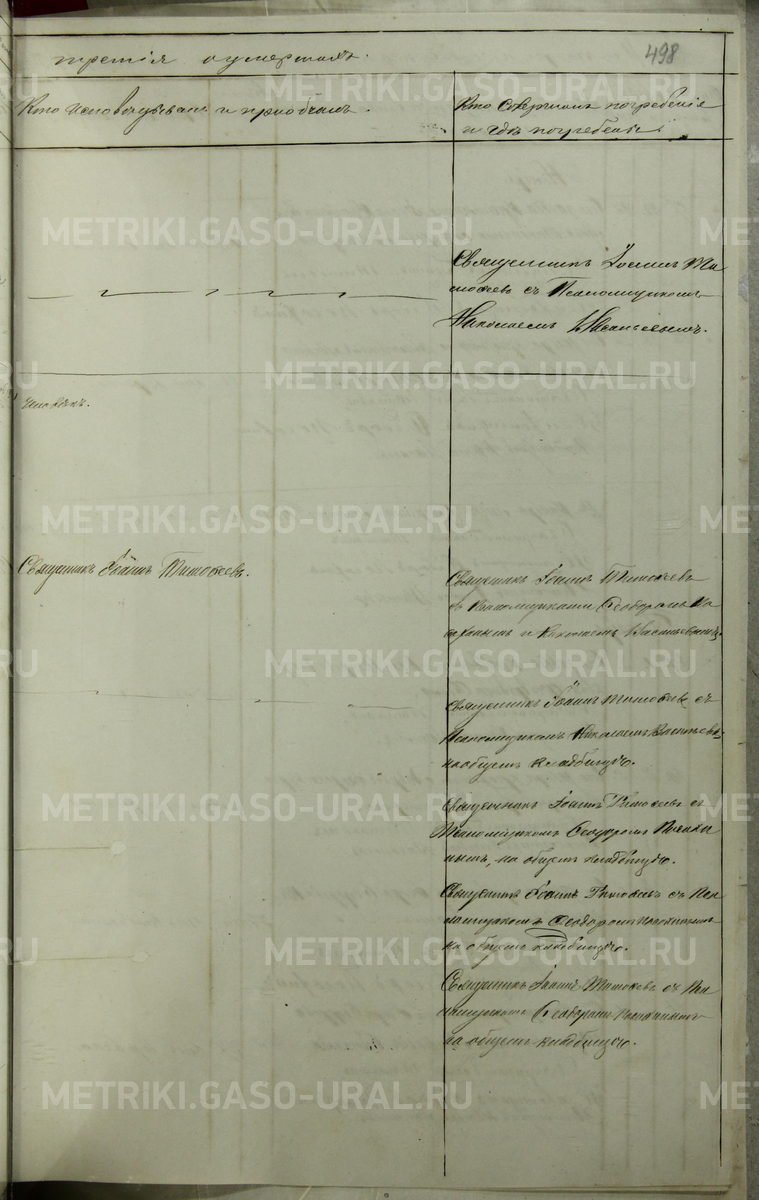 третія о умершихъ.
498
Кто исповѣдывалъ и приобщалъ.
Кто совершалъ погребеніе
и гдѣ погребены.
Священникъ Іоаннъ Ти
моѳеевъ съ Псаломщикомъ
Николаемъ
человѣкъ.
Священникъ Іоаннъ Тимоѳеевъ.
Священникъ Іоаннъ Тимоѳеевъ
съ Псаломщиками Ѳеодоромъ
и Николаемъ
Священникъ Іоаннъ Тимоѳеевъ съ
Псаломщикомъ Николаемъ
на общемъ кладбищѣ.
Священникъ Іоаннъ Тимоѳеевъ съ
Псаломщикомъ Ѳеодоромъ
на общемъ кладбищѣ.
Священникъ Іоаннъ Тимоѳеевъ съ Пса
ломщикомъ Ѳеодоромъ
на общемъ кладбищѣ.
Священникъ Іоаннъ Тимоѳеевъ съ Пса
ломщикомъ Ѳеодоромъ
на общемъ кладбищѣ.
METRIKI.GASO-URAL.RU